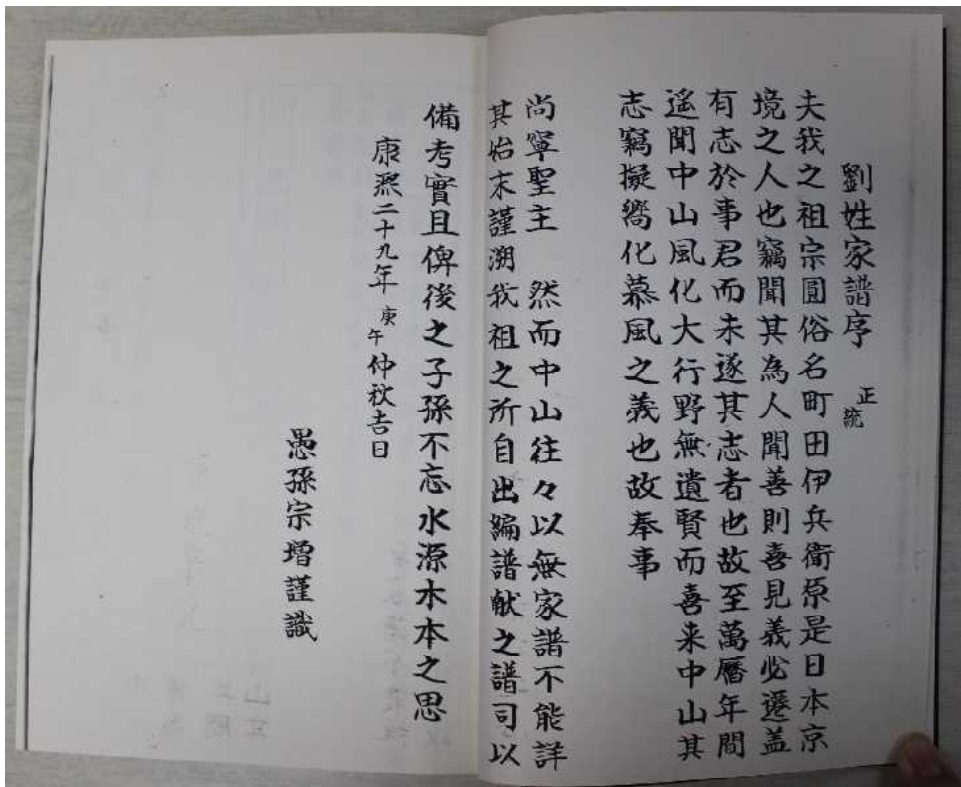 劉姓家譜序 正統
夫我之祖宗圓俗名町田伊兵衛原是日本京
境之人也竊聞其為人聞善則喜見義必遷盖
有志於事君而未遂其志者也故至萬曆年間
遥聞中山風化大行野無遺賢而喜来中山其
志竊擬嚮化慕風之義也故奉事
尚寧聖主 然而中山往々以無家譜不能詳
其始末謹溯我祖之所自出編譜献之譜司以
備考實且俾後之子孫不忘水源木本之思
康熙二十九年庚午仲秋吉日
愚孫宗增謹識